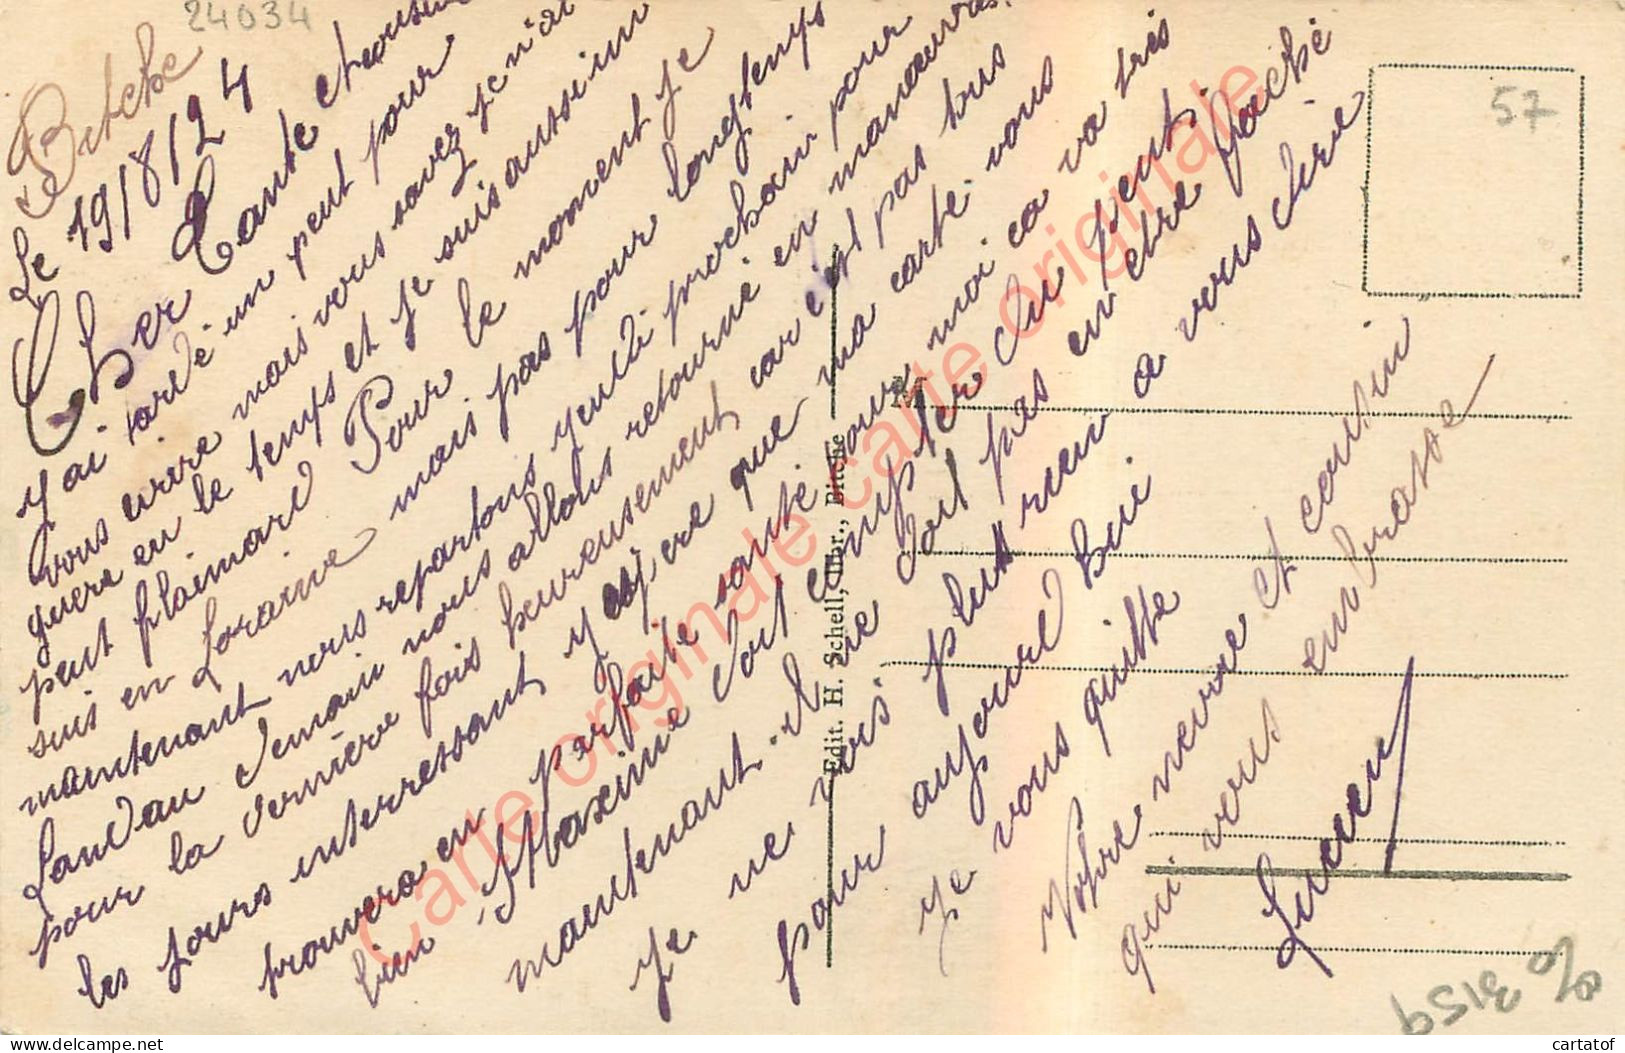 24034
57
Bitche
Le 19/8/24
Cher Tante et cousin
J'ai tardé un peut pour
vous ecrire mais vous savez je n'ai
guere eu le temps et je suis aussi un
peut flaimard Pour le moment je
suis en Loraine mais pas pour longtemps
maintenant nous repartons jeudi prochain pour
Landau demain nous allons retourné en manoeuvres
pour la dernière fois heureusement car c'est pas tous
les jours interressant j'espere que ma carte vous
trouvera en parfaite santé pour moi ca va tres
bien Maxime doit compter du peut
maintenant il ne doit pas en etre faché
Je ne vois plus rien a vous dire
pour aujourd hui
Je vous quitte
Votre neveu et cousin
qui vous embrasse
Lucien
Edit. H. Schell, libr., Bitche
carte originale carte originale carte originale
cartatof